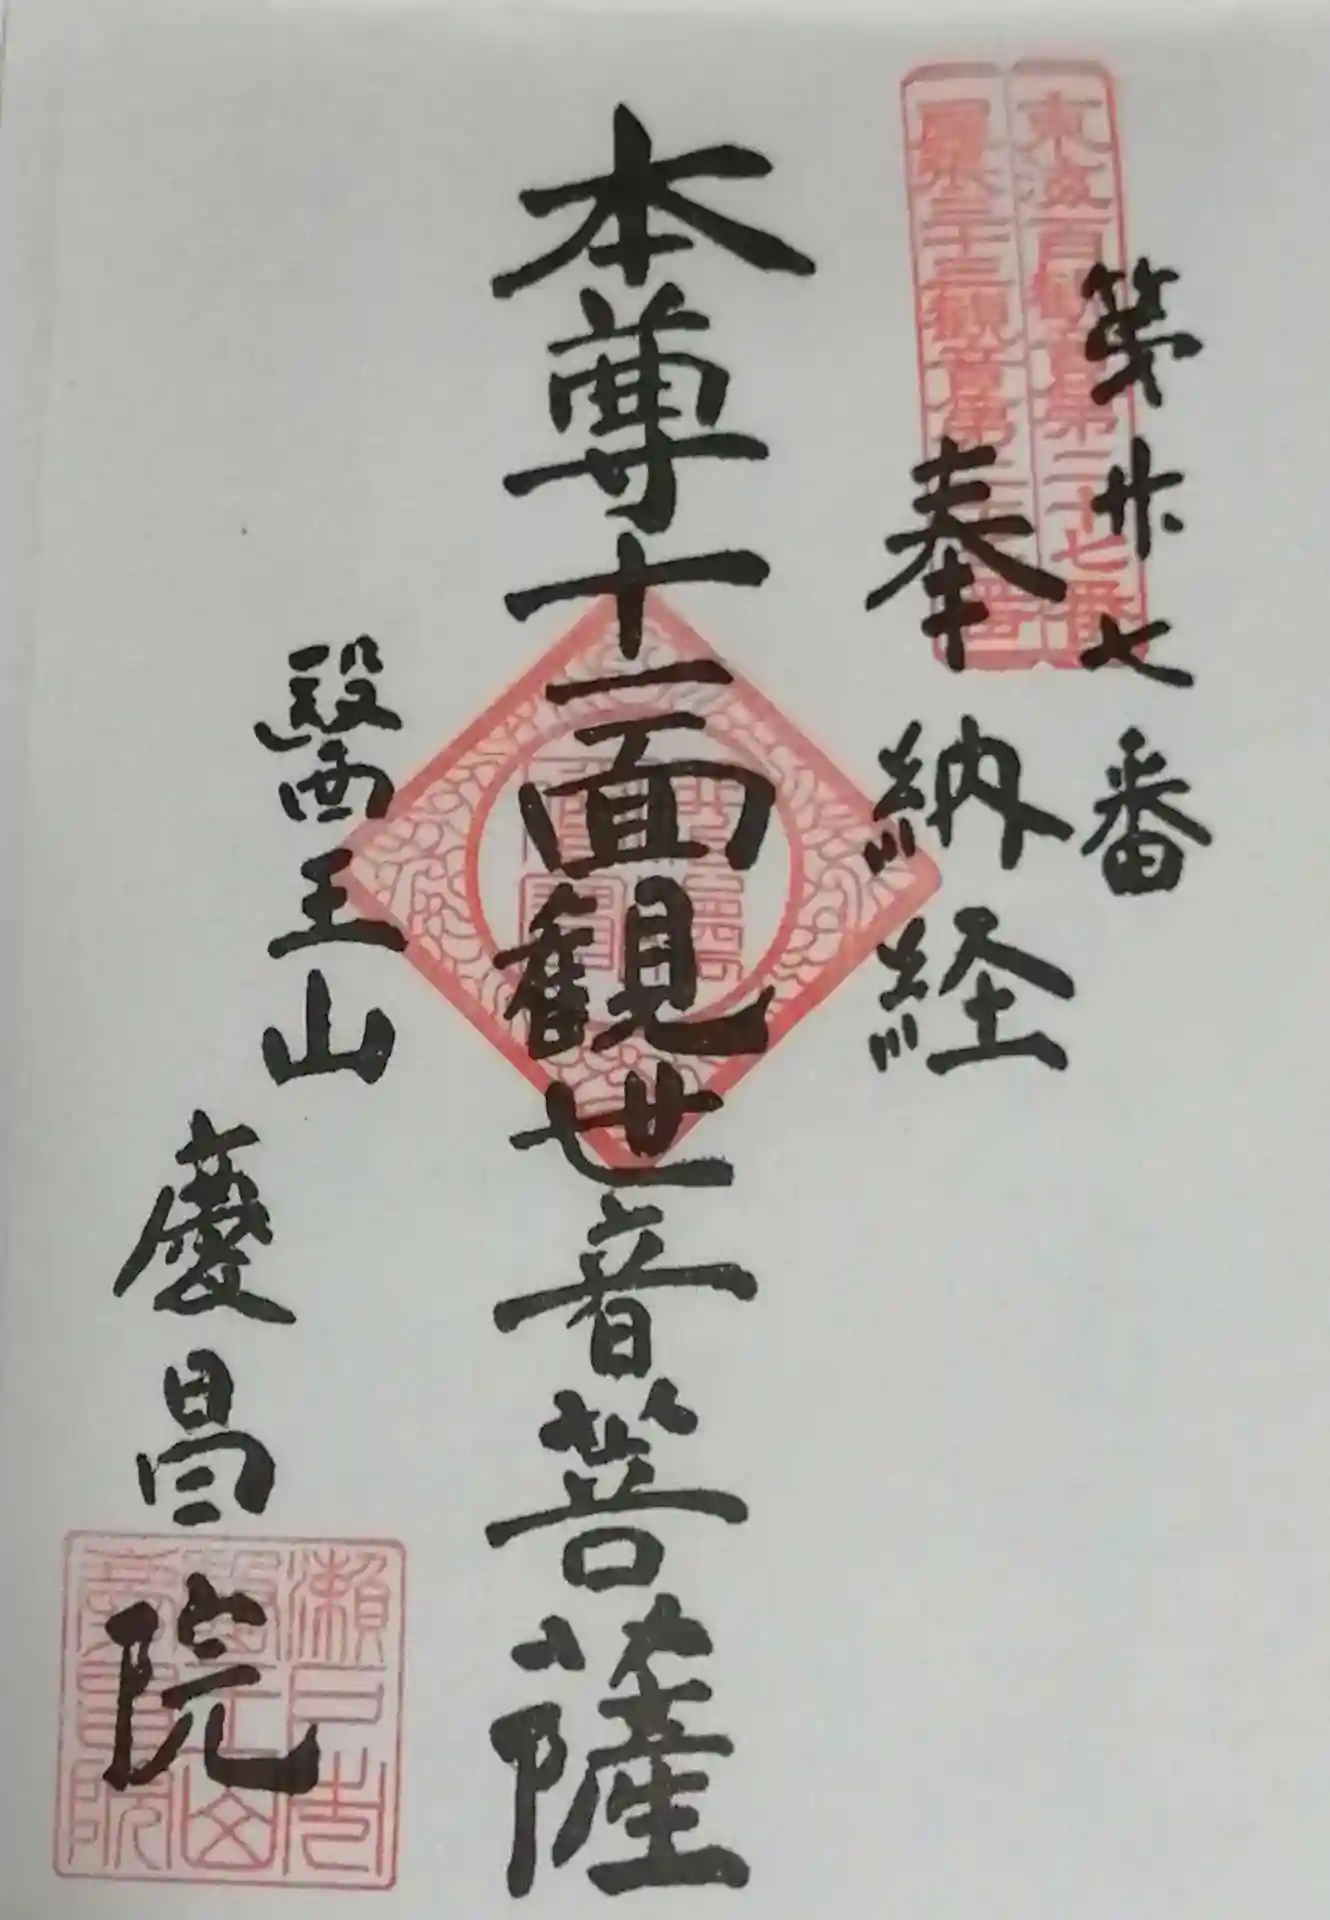 第廾七番
東海百観音第二十七番
尾張三十三観音第二十七番
奉納経
本尊十一面観世音菩薩
醫王山
慶昌院
瀬戸市
醫王山
慶昌院